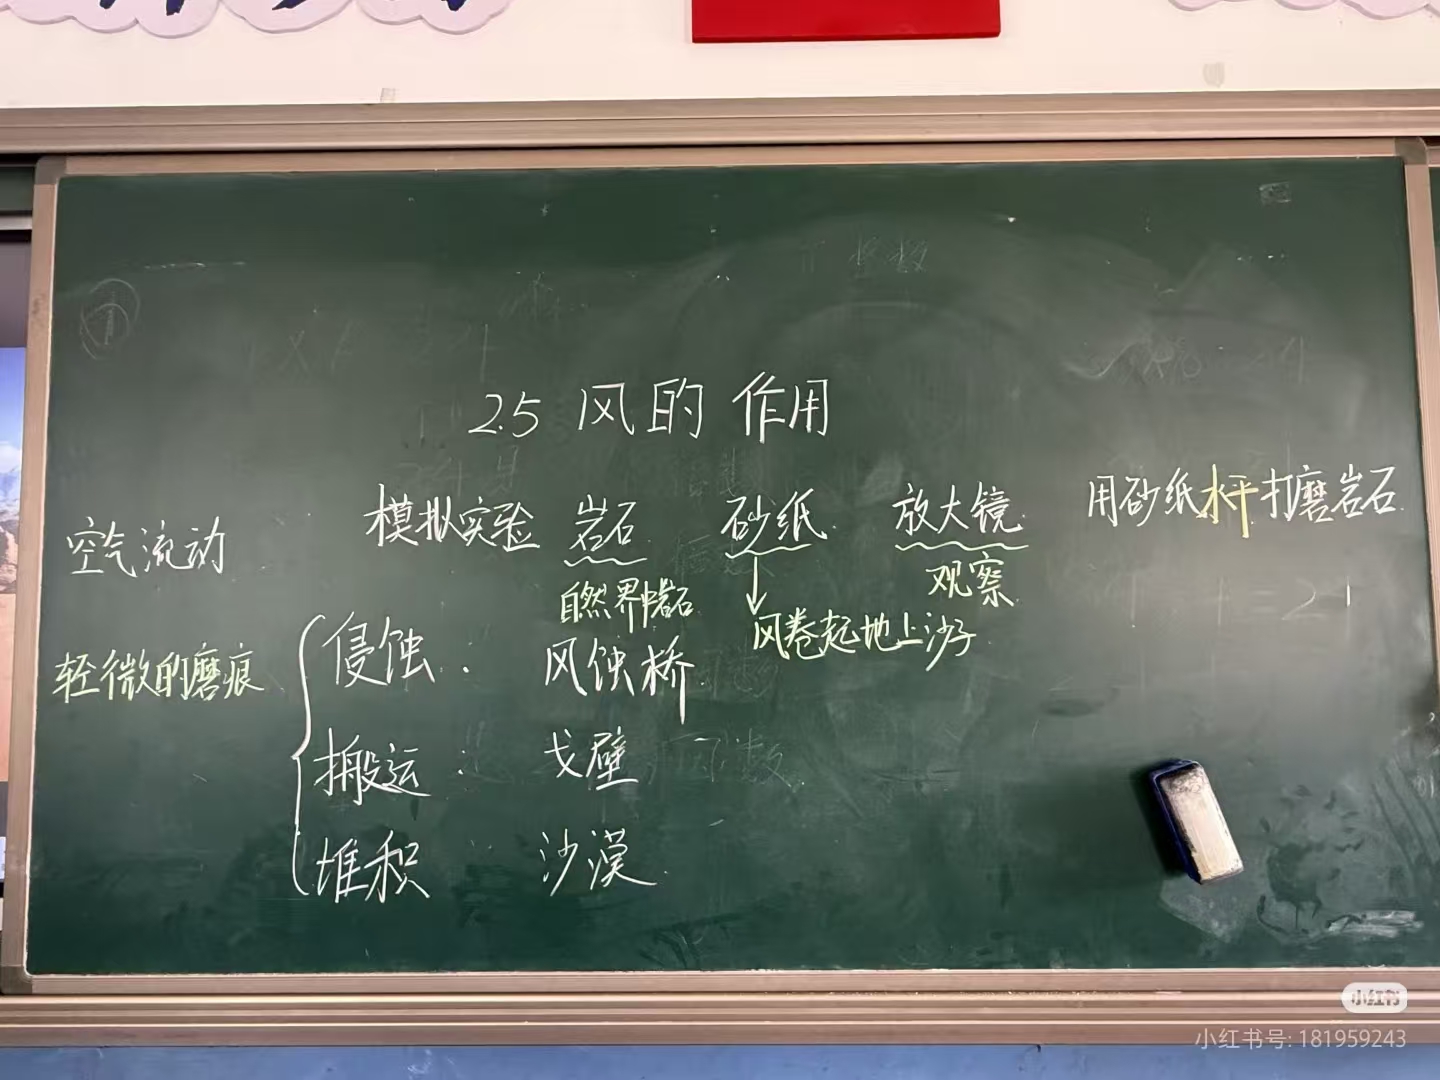 2.5 风的作用
空气流动
模拟实验 岩石 砂纸 放大镜 用砂纸水平打磨岩石
自然界中岩石 风卷起地上沙子 观察
轻微的磨痕
侵蚀: 风蚀桥
搬运: 戈壁
堆积: 沙漠
小红书
小红书号: 181959243